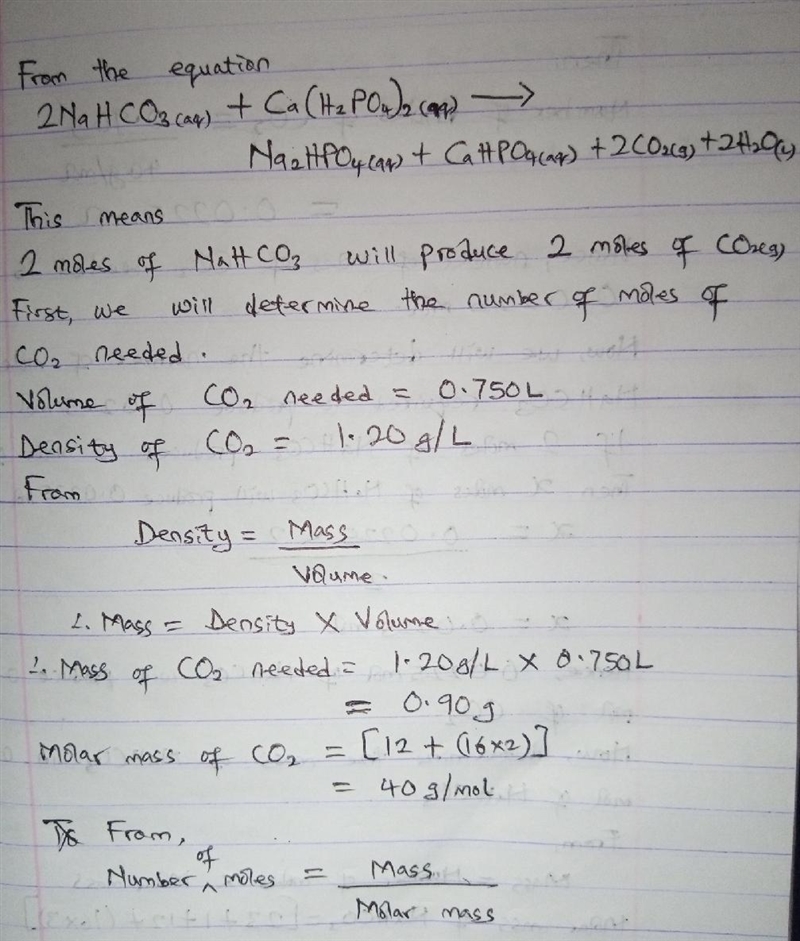 From the equation
2NaHCO3(aq) + Ca(H2PO4)2(aq) ⟶
Na2HPO4(aq) + CaHPO4(aq) + 2CO2(g) + 2H2O(l)
This means
2 moles of NaHCO3 will produce 2 moles of CO2(g)
First, we will determine the number of moles of
CO2 needed.
Volume of CO2 needed = 0.750L
Density of CO2 = 1.20 g/L
From
Density = Mass
Volume.
∴ Mass = Density × Volume
∴ Mass of CO2 needed = 1.20g/L × 0.750L
= 0.90g
Molar mass of CO2 = [12 + (16×2)]
= 40 g/mol
From,
Number of moles = Mass
Molar mass